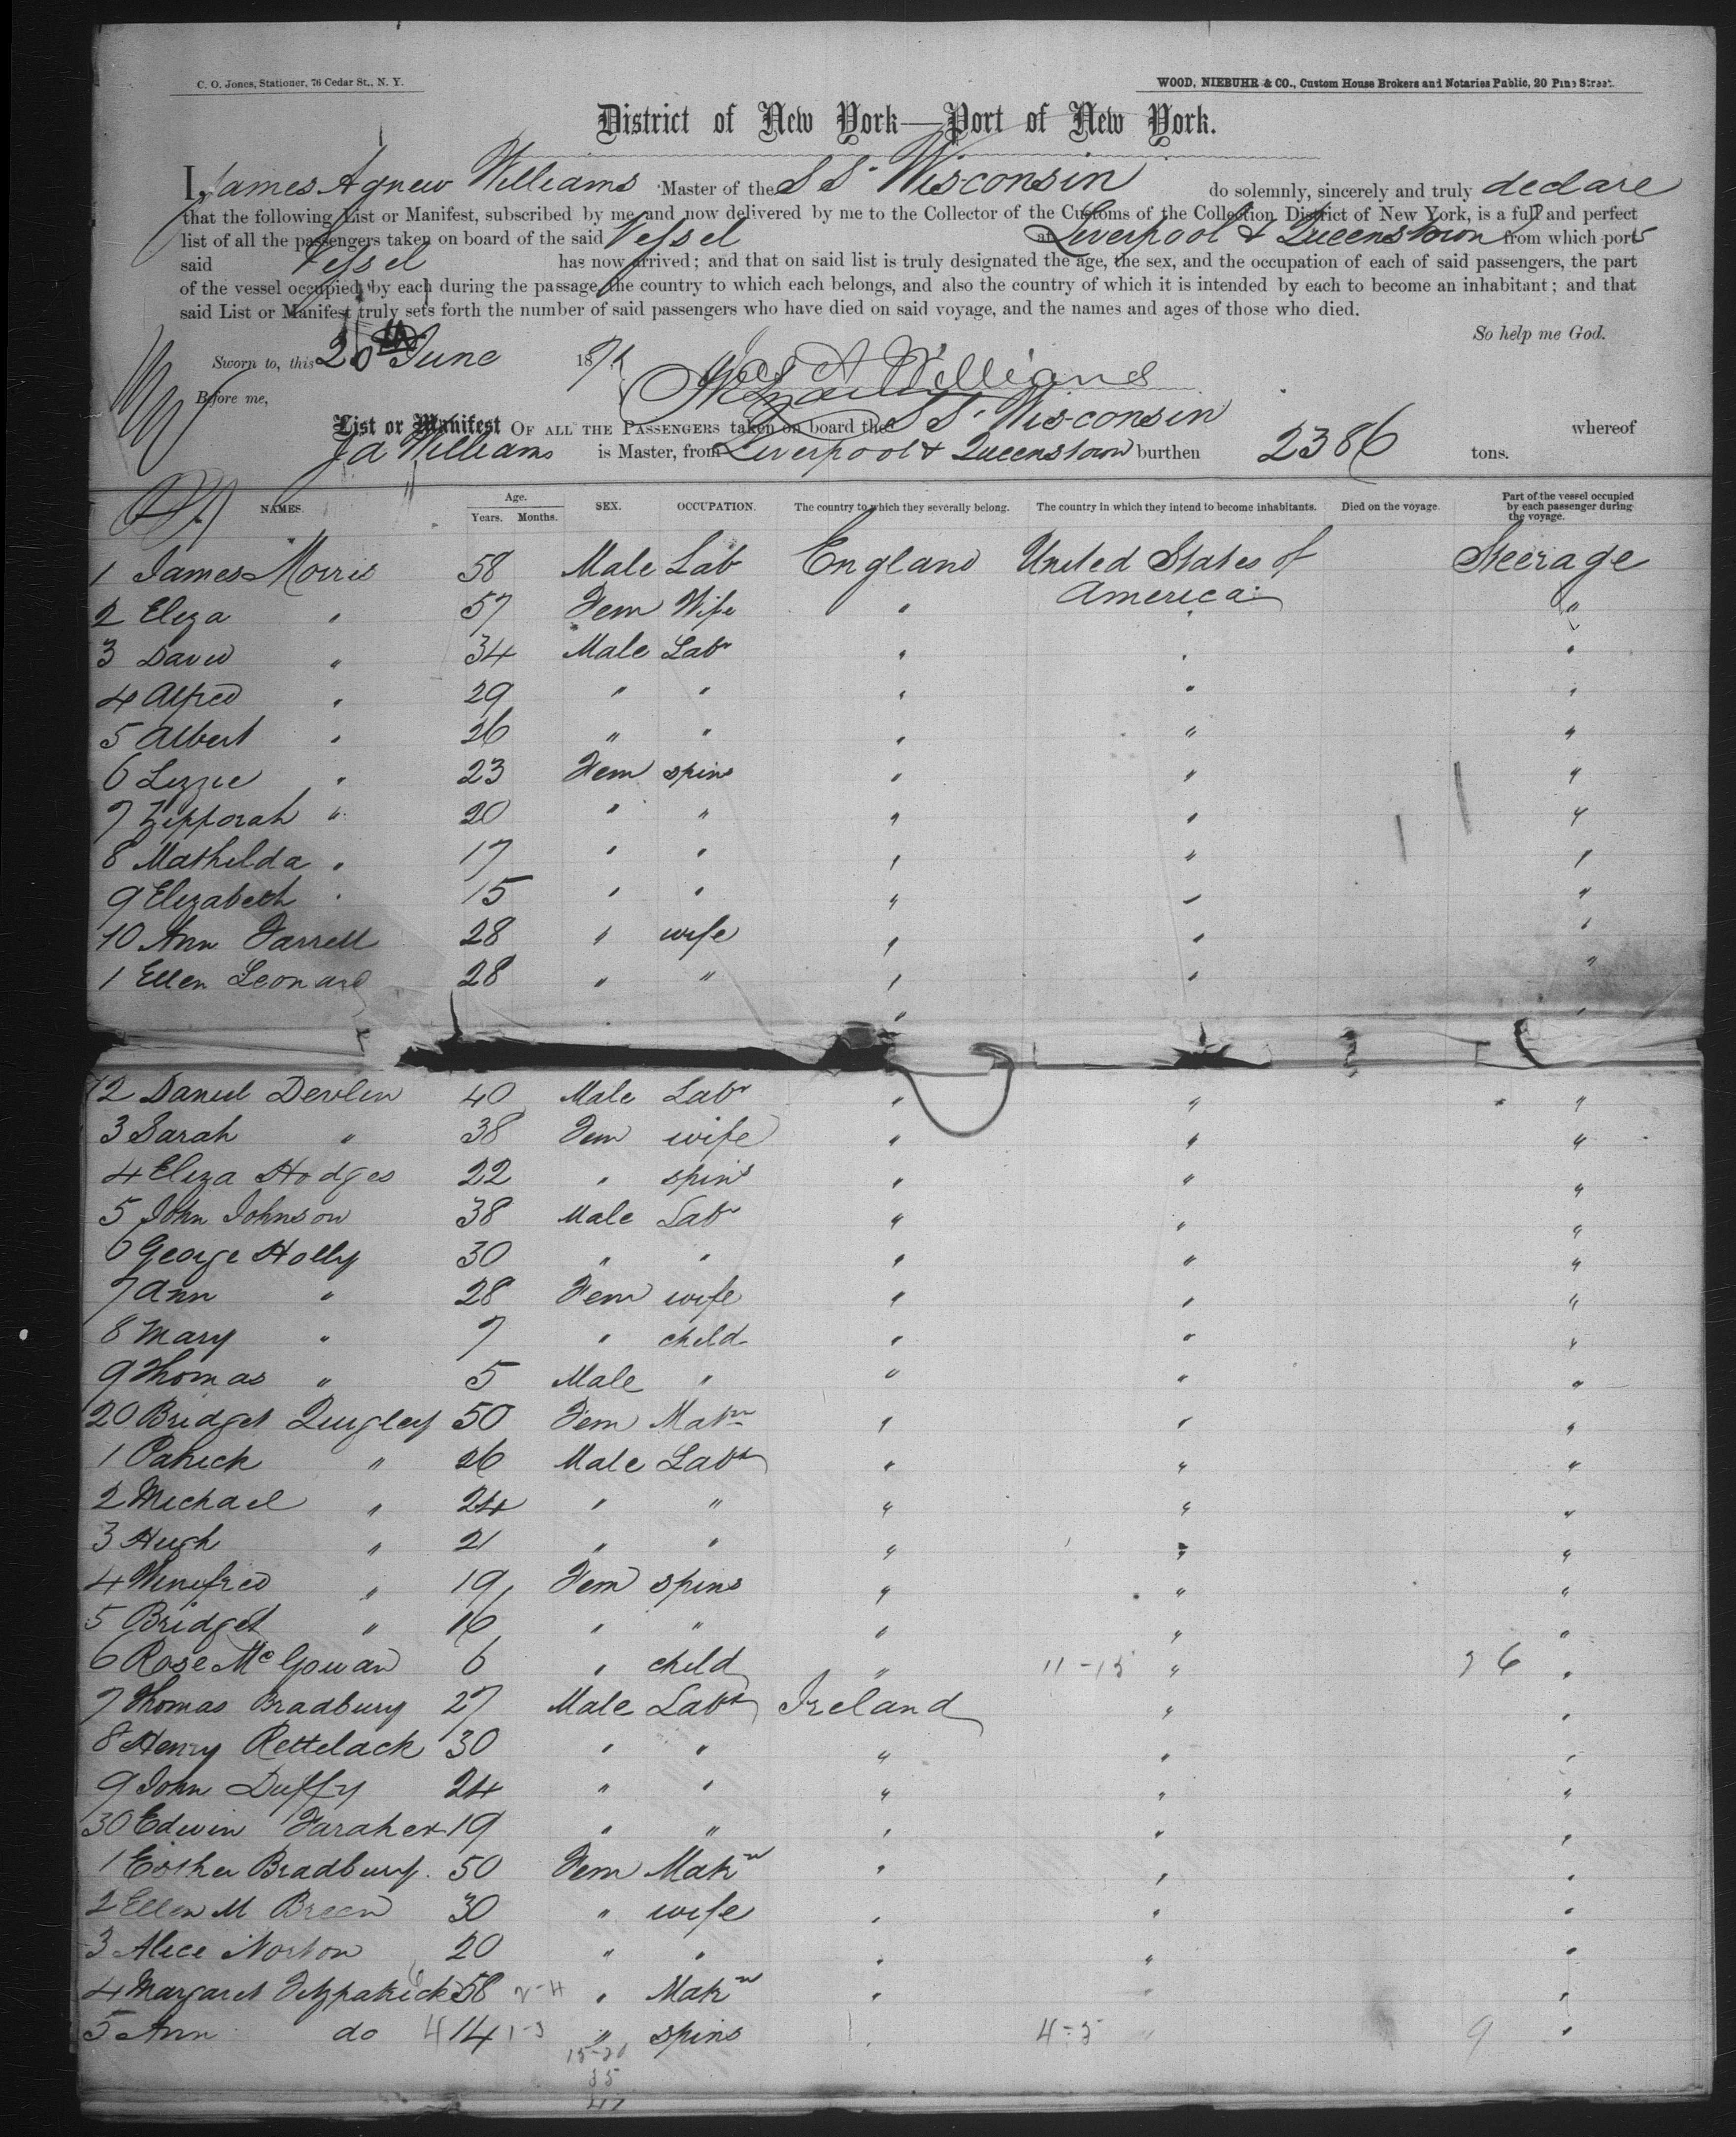 C. O. Jones, Stationer, 76 Cedar St., N. Y.
WOOD, NIEBUHR & CO., Custom House Brokers and Notaries Public, 20 Pine Street.
District of New York—Port of New York.
I, James Agnew Williams Master of the SS Wisconsin do solemnly, sincerely and truly declare
that the following List or Manifest, subscribed by me and now delivered by me to the Collector of the Customs of the Collection District of New York, is a full and perfect
list of all the passengers taken on board of the said Vessel at Liverpool & Queenstown from which ports
said Vessel has now arrived; and that on said list is truly designated the age, the sex, and the occupation of each of said passengers, the part
of the vessel occupied by each during the passage, the country to which each belongs, and also the country of which it is intended by each to become an inhabitant; and that
said List or Manifest truly sets forth the number of said passengers who have died on said voyage, and the names and ages of those who died.
So help me God.
Sworn to, this 26th June 18
Jas A Williams
Before me,
List or Manifest OF ALL THE PASSENGERS taken on board the SS Wisconsin whereof
J A Williams is Master, from Liverpool & Queenstown burthen 2386 tons.
NAMES. Age. Years. Months. SEX. OCCUPATION. The country to which they severally belong. The country in which they intend to become inhabitants. Died on the voyage. Part of the vessel occupied by each passenger during the voyage.
1 James Morris 58 Male Lab England United States of America Steerage
2 Eliza " 57 Fem Wife " " "
3 David " 34 Male Labr " " "
4 Alfred " 29 " " " " "
5 Albert " 26 " " " " "
6 Lizzie " 23 Fem spins " " "
7 Zipporah " 20 " " " " "
8 Mathilda " 17 " " " " "
9 Elizabeth " 15 " " " " "
10 Ann Farrell 28 " wife " " "
1 Ellen Leonard 28 " " " " "
12 Daniel Devlin 40 Male Labr " " "
3 Sarah " 38 Fem wife " " "
4 Eliza Hodges 22 " spins " " "
5 John Johnson 38 Male Labr " " "
6 George Holly 30 " " " " "
7 Ann " 28 Fem wife " " "
8 Mary " 7 " child " " "
9 Thomas " 5 Male " " " "
20 Bridget Quigley 50 Fem Matrn " " "
1 Patrick " 26 Male Labr " " "
2 Michael " 24 " " " " "
3 Hugh " 21 " " " " "
4 Winifred " 19 Fem spins " " "
5 Bridget " 16 " " " " "
6 Rose McGowan 6 " child " 11-15 " 26 "
7 Thomas Bradbury 27 Male Labr Ireland " "
8 Henry Rettelack 30 " " " " "
9 John Duffy 24 " " " " "
30 Edwin Faraher 19 " " " " "
1 Esther Bradbury 50 Fem Matrn " " "
2 Ellen M Breen 30 " wife " " "
3 Alice Norton 20 " " " " "
4 Margaret Fitzpatrick 58 " Matrn " " "
5 Ann do 14 " spins " 4-5 " 9 "
15-20
35